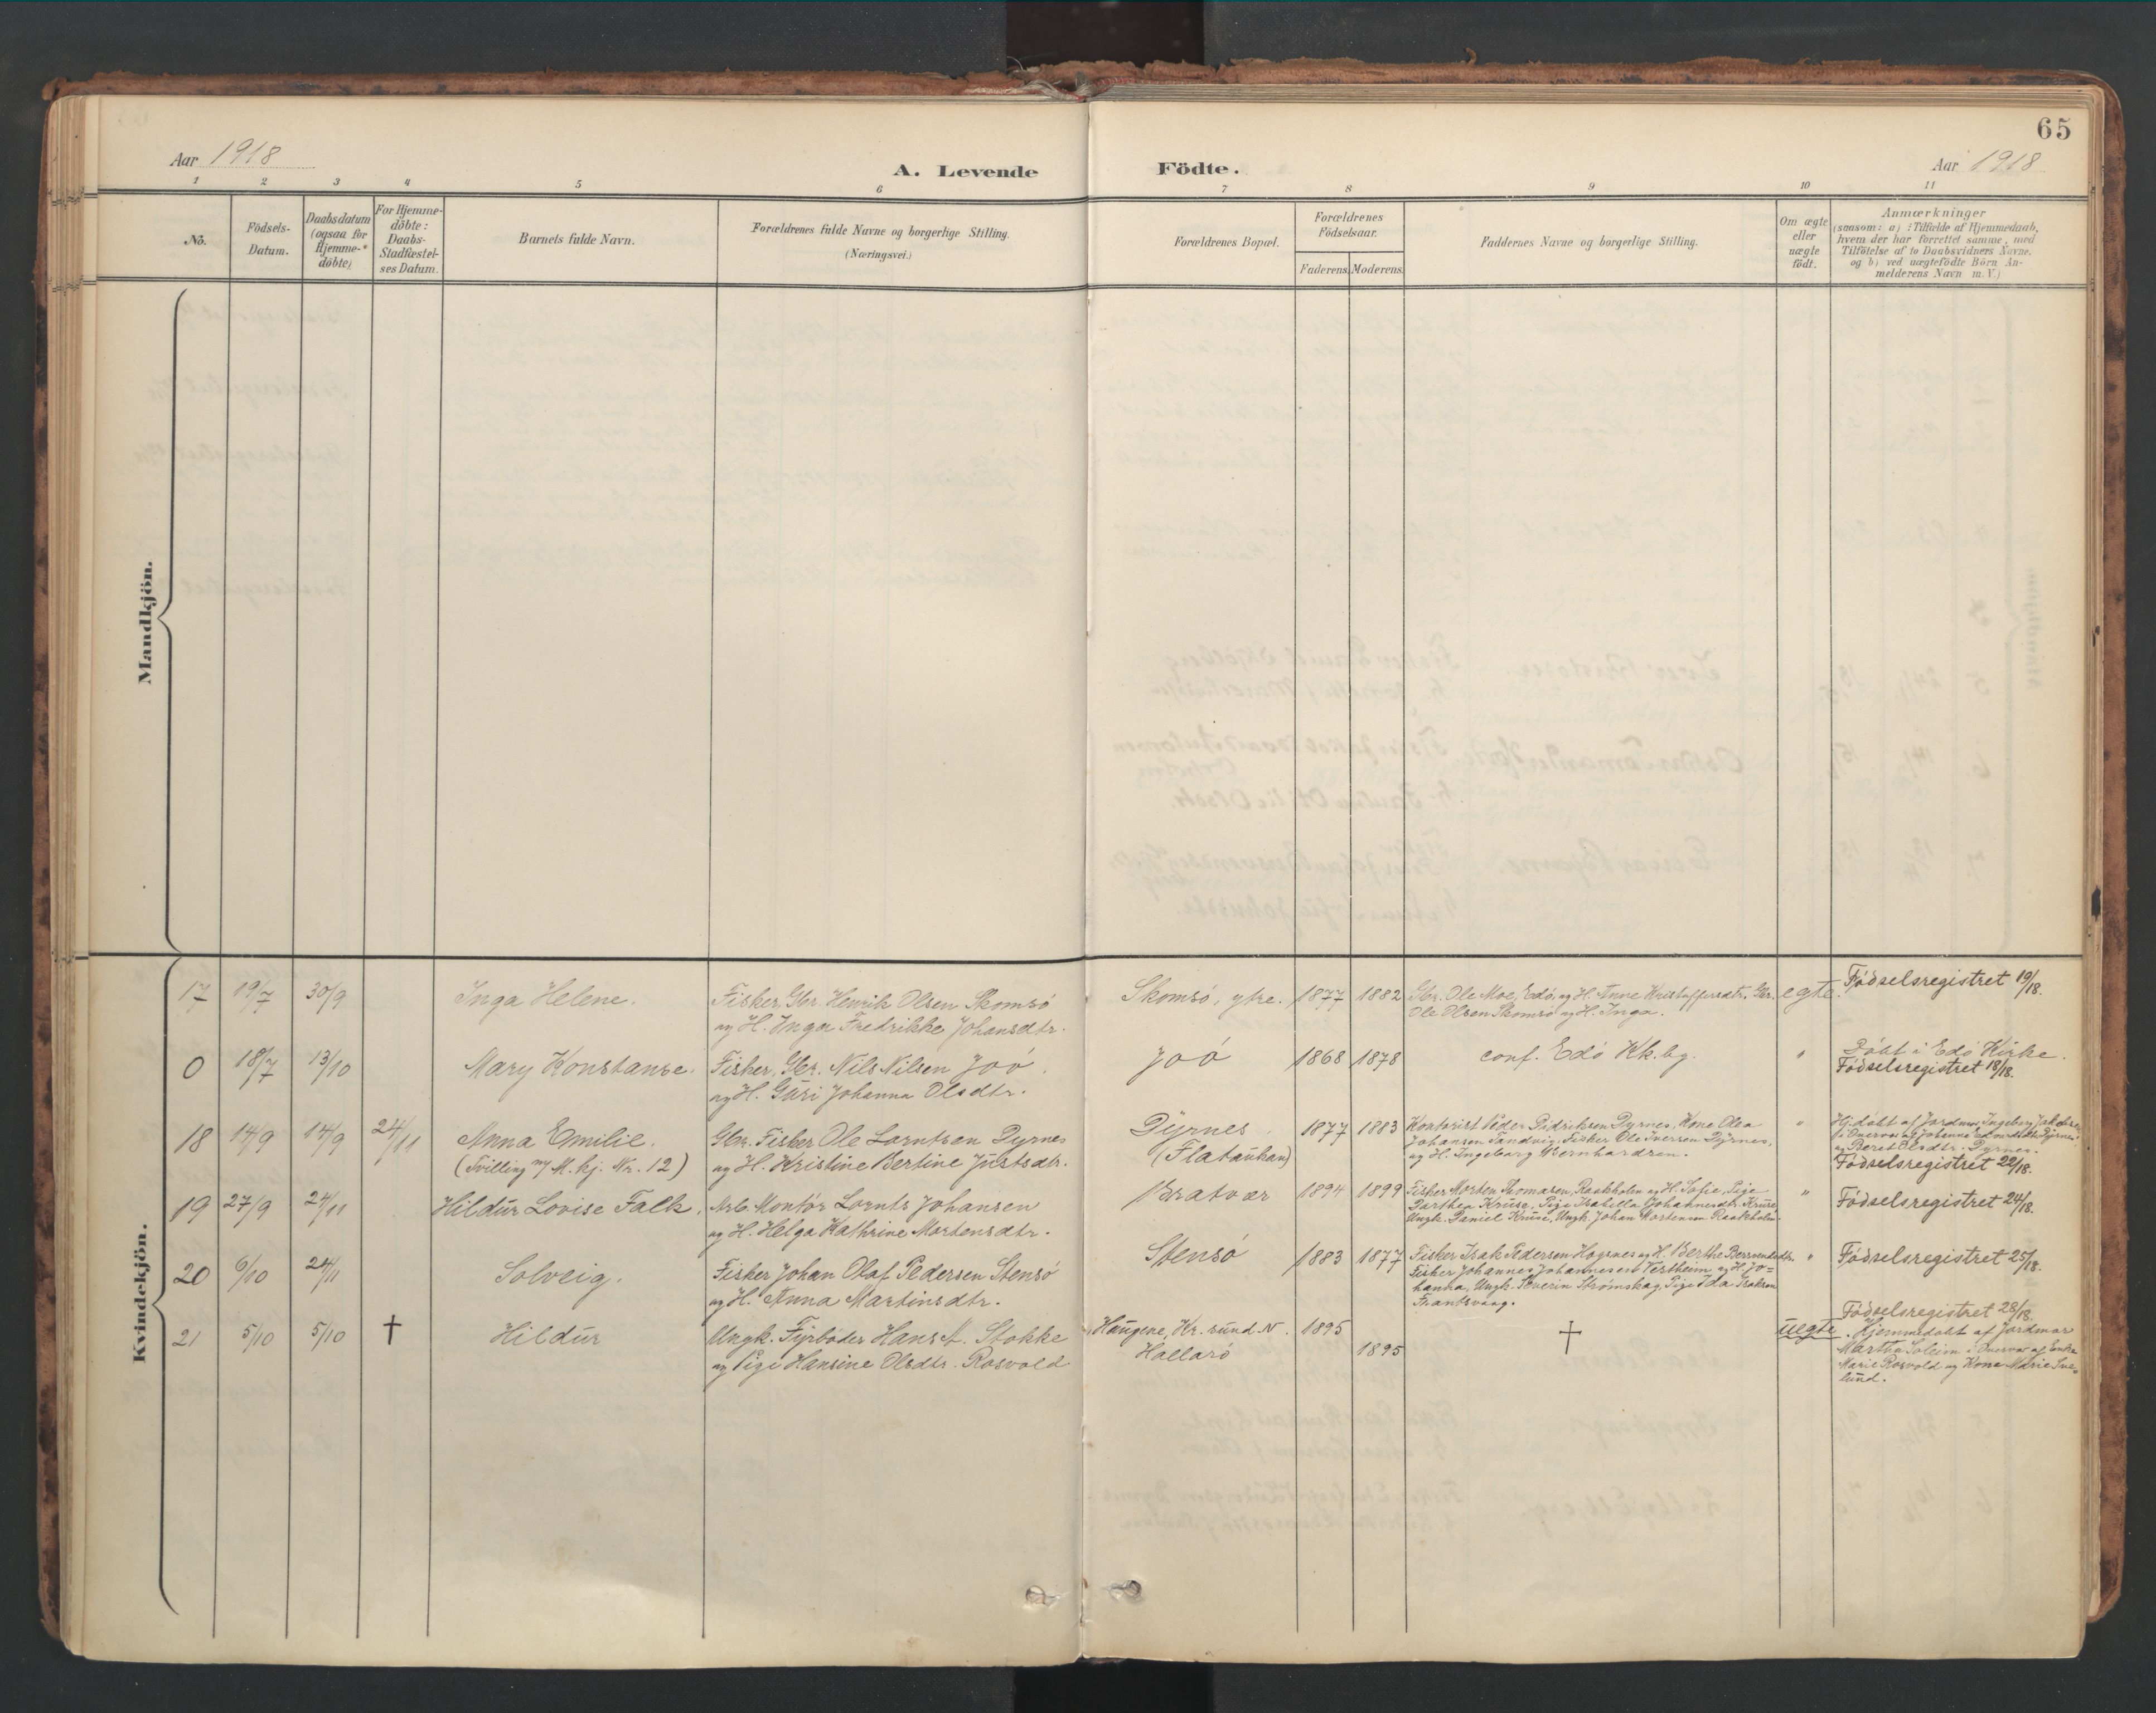 65
Aar 1918
A. Levende Födte.
Aar 1918
1 2 3 4 5 6 7 8 9 10 11
No.
Födsels-
Datum.
Daabsdatum
(ogsaa for
Hjemme-
döbte)
For Hjemme-
döbte:
Daabs-
Stadfæstel-
ses Datum.
Barnets fulde Navn.
Forældrenes fulde Navne og borgerlige Stilling.
(Næringsvei.)
Forældrenes Bopæl.
Forældrenes
Födselsaar.
Faderens. Moderens.
Faddernes Navne og borgerlige Stilling.
Om ægte
eller
uægte
födt.
Anmærkninger
(saasom: a) i Tilfælde af Hjemmedaab,
hvem der har forrettet samme, med
Tilföielse af to Daabsvidners Navne.
og b) ved uægtefödte Börn An-
melderens Navn m.V.)
Mandkjön.
Kvindekjön.
17 19/7 30/9
Inga Helene.
Fisker, Gbr. Henrik Olsen Skomsö
og H. Inga Fredrikke Johansdtr.
Skomsö, ytre.
1877 1882
Gbr. Ole Moe, Edö, og H. Anne Kristoffersdtr. Gbr.
Ole Olsen Skomsö og H. Inga.
egte.
Födselsregistret 19/18.
0 18/7 13/10
Mary Konstanse.
Fisker, Gbr. Nils Nilsen Joö.
og H. Guri Johanna Olsdtr.
Joö
1868 1878
conf. Edö Kk.bg.
"
Döbt i Edö Kirke.
Födselsregistret 18/18.
18 14/9 14/9 24/11
Anna Emilie.
(Tvilling m/ M. kj. Nr. 12)
Gbr. Fisker Ole Lorntsen Dyrnes
og H. Kristine Bertine Justsdtr.
Dyrnes
(Flatauhan)
1877 1883
Kontorist Peder Didriksen Dyrnes, Kone Olea
Johansen Sandvig, Fisker Ole Iversen Dyrnes,
og H. Ingeborg Bernhardsen.
"
Hj.döbt af Jordmor Ingeborg
og Beret Olsdtr. Dyrnes.
Födselsregistret 22/18.
19 27/9 24/11
Hildur Lovise Falk.
Arb. Montör Lornts Johansen
og H. Helga Kathrine Mortensdtr.
Bratvær
1894 1899
Fisker Morten Thomasen, Raakholm og H. Sofie, Pige
Darthea Kruse, Pige Isabella Johannesdtr. Kruse
Ungk. Daniel Kruse, Ungk. Johan Mortensen Raakholm.
"
Födselsregistret 24/18.
20 6/10 24/11
Solveig.
Fisker Johan Olaf Pedersen Stensö
og H. Anna Martinsdtr.
Stensö
1883 1877
Fisker Isak Pedersen Hogsnes og H. Berthe
Fisker Johannes Johannesen Vertheim og H. Jo=
hanna, Ungk. Severin Strömskag, Pige Ida Isaksen
Frantsvaag.
"
Födselsregistret 25/18.
21 5/10 5/10 †
Hildur
Ungk. Fyrböder Hans A. Stokke
og Pige Hansine Olsdtr. Rosvold
Haugene, Kr. sund N.
Hallarö
1895
1895
†
uegte.
Födselsregistret 28/18.
Hjemmedöbt af Jordmor
Martha Soleim i Overvær af Enke
Marit Rosvold og Kona Marie Sve=
lund.